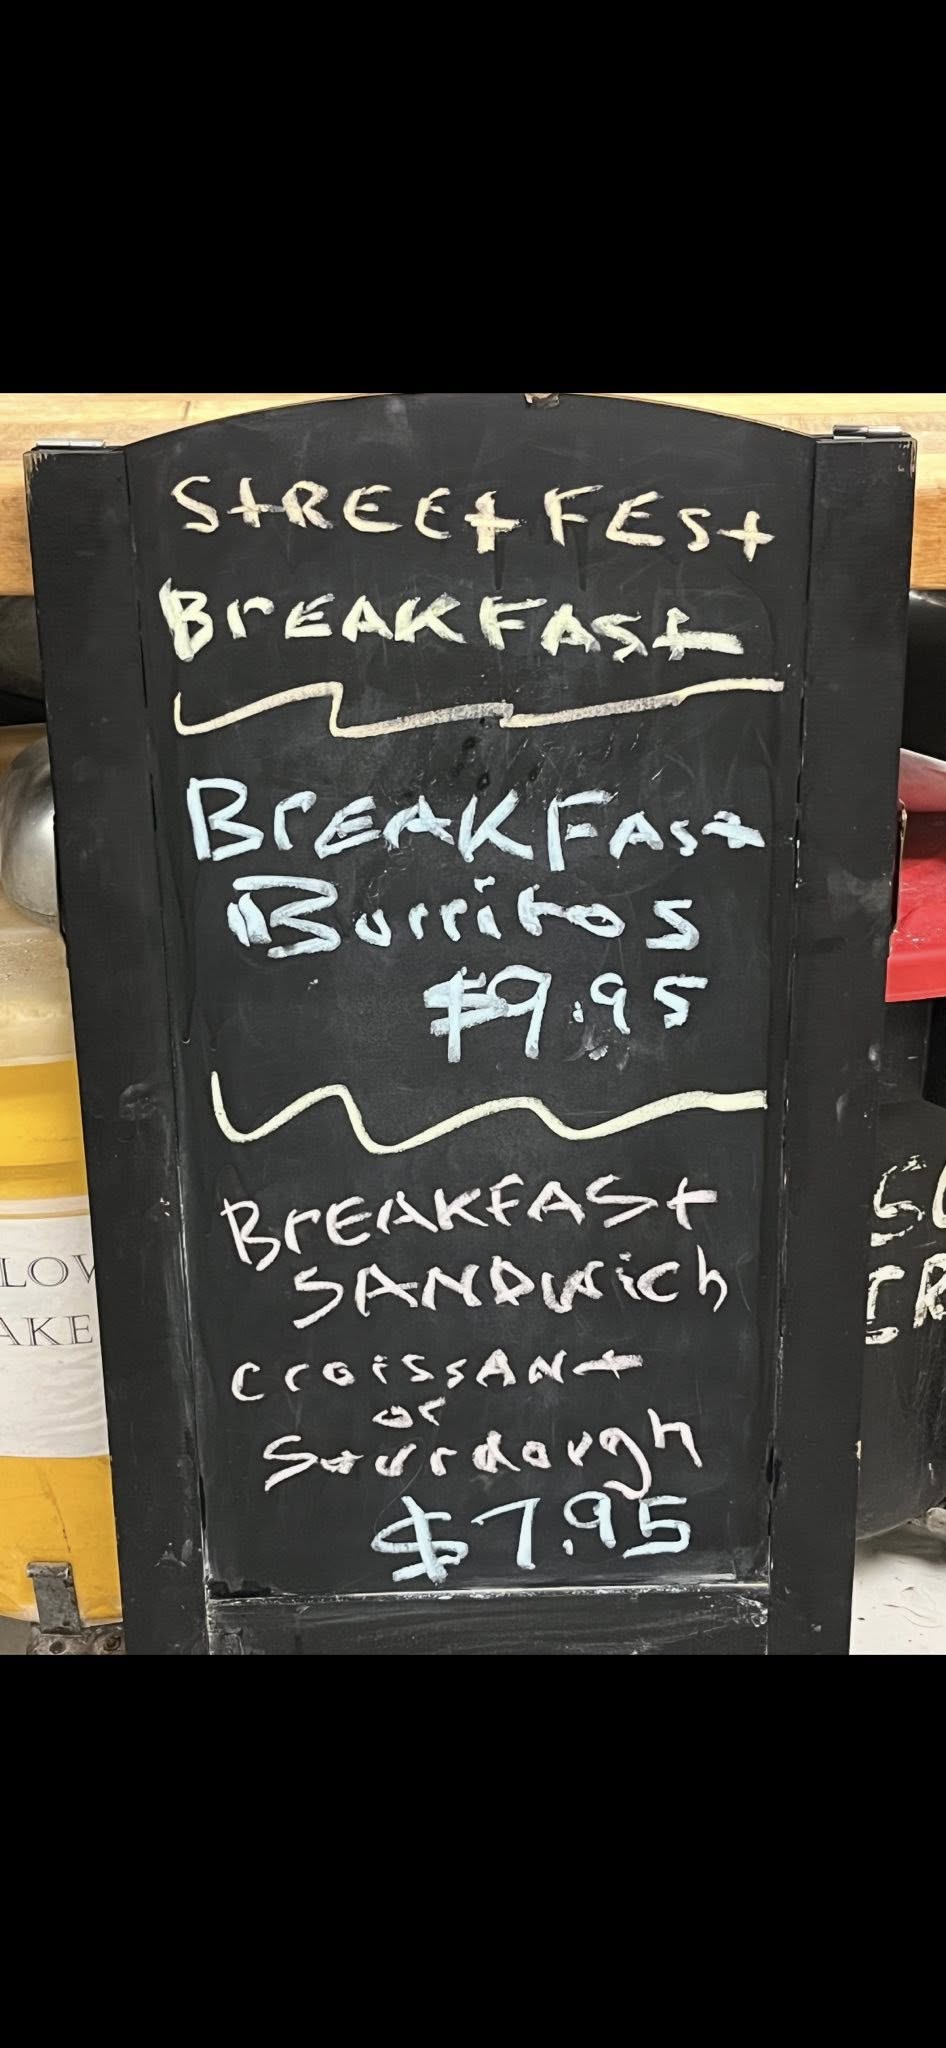 StREEt FESt
BrEAKFASt
BrEAKFAst
Burritos
$9.95
BrEAKFASt
SANDWich
croissANt
or
Sourdough
$7.95
LOV
AKE